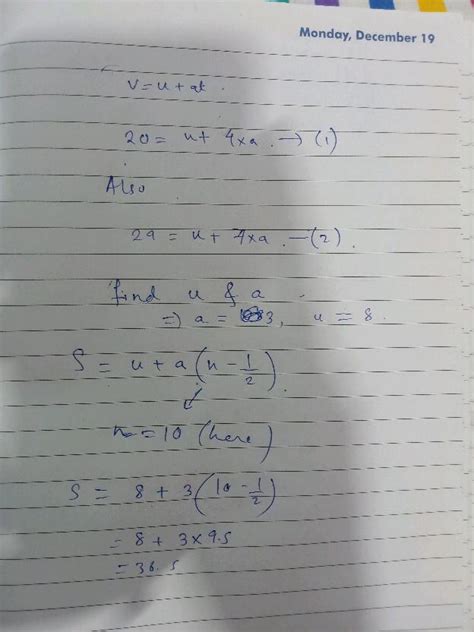 Monday, December 19
V = u + at.
20 = u + 4 x a. → (1)
Also
29 = u + 7 x a. — (2).
find u & a.
⇒ a = 3, u = 8.
S = u + a(n - 1/2).
n = 10 (here)
S = 8 + 3(10 - 1/2)
= 8 + 3 x 9.5
= 36.5